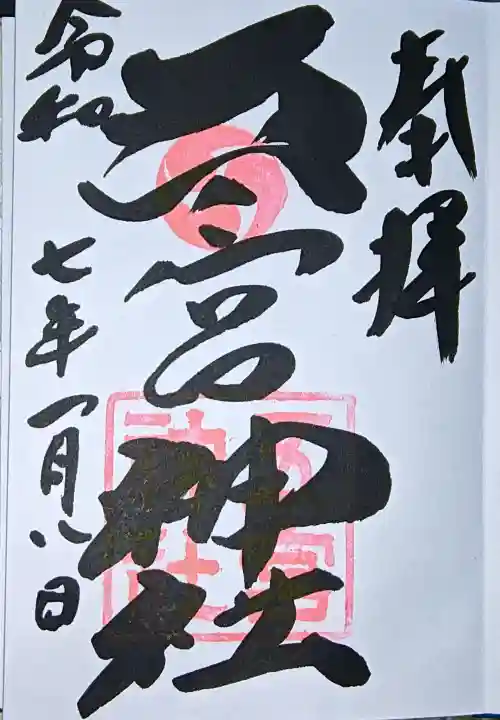 奉拝
天宮神社
令和七年一月八日